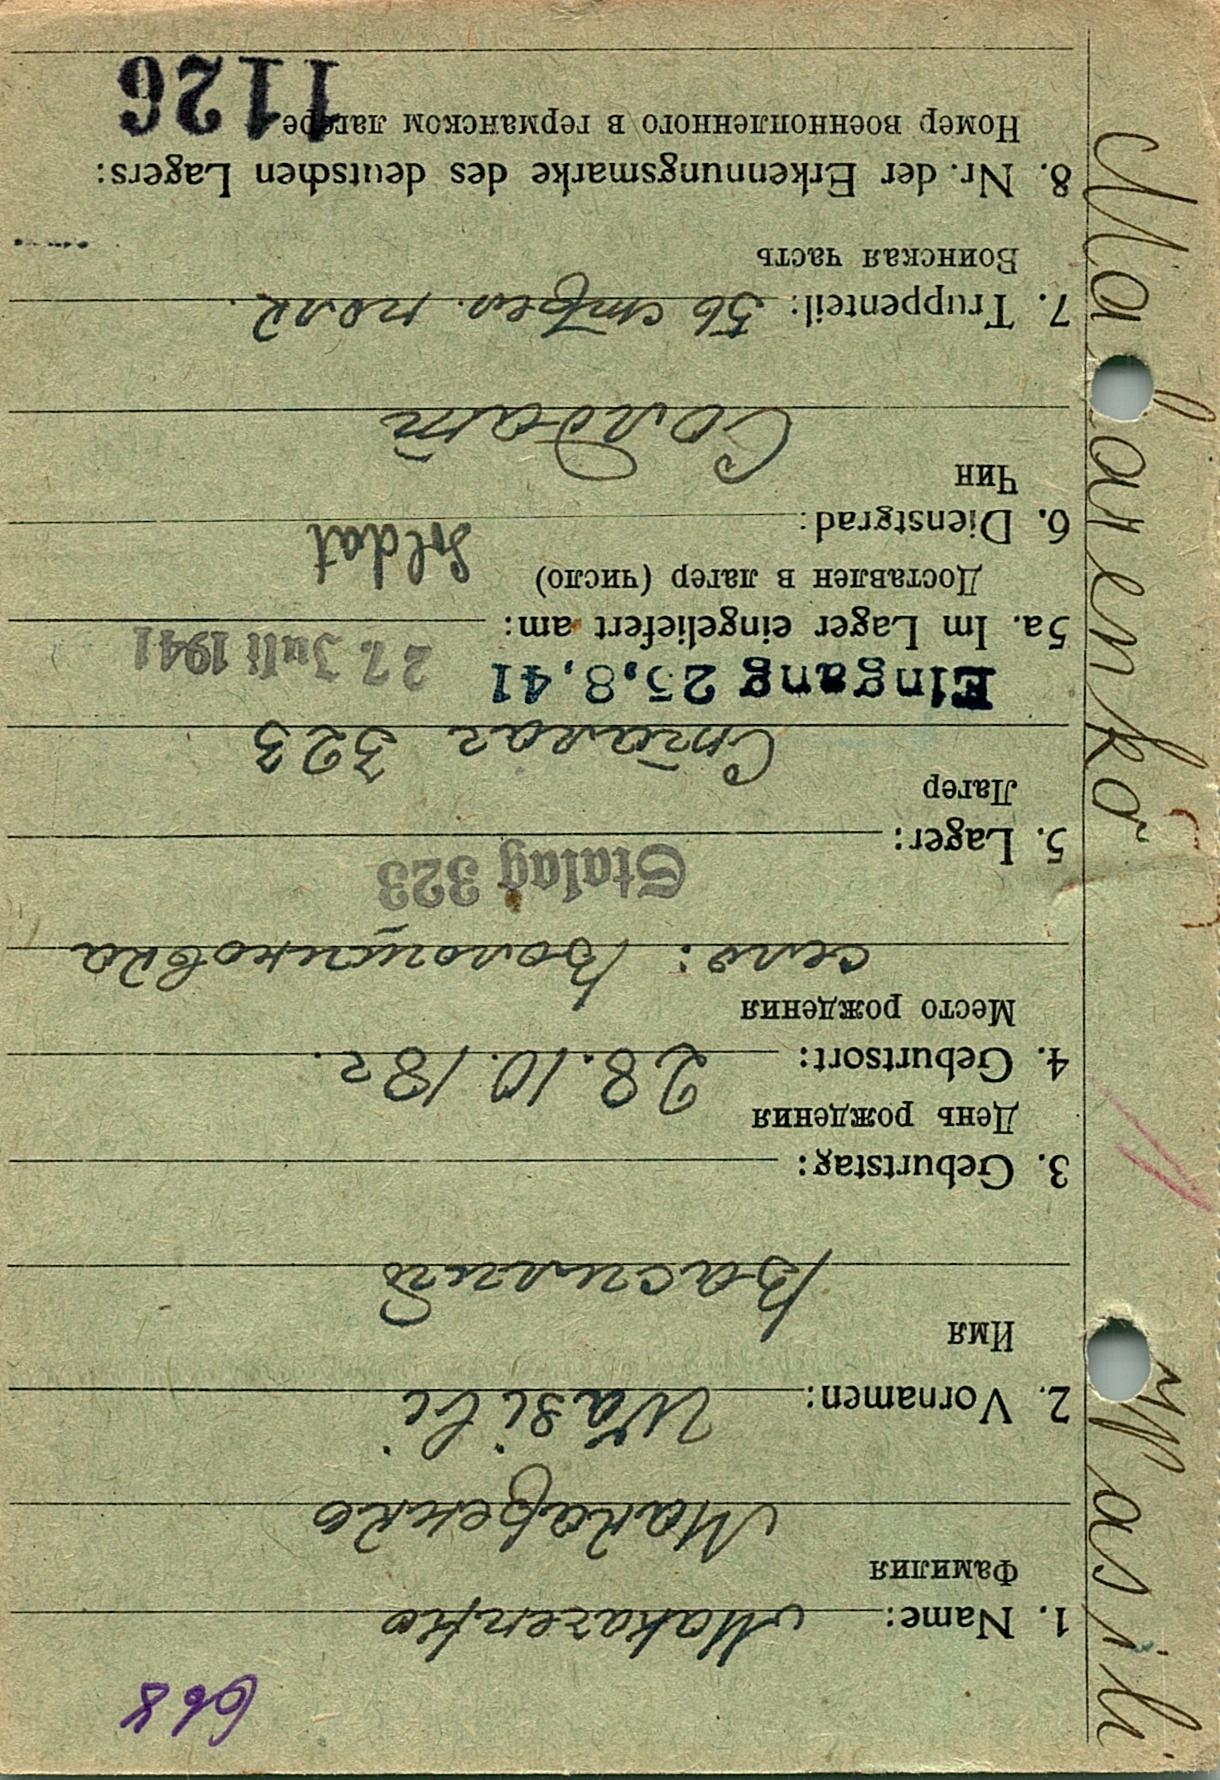 668
1. Name: Makarenko
Фамилия
Макаренко
2. Vornamen: Wasili
Имя
Василий
3. Geburtstag:
День рождения
28.10.18г.
4. Geburtsort:
Место рождения
село: Волощиковка
Stalag 323
5. Lager:
Лагер
Сталаг 323
Eingang 25.8.41
27. Juli 1941
5a. Im Lager eingeliefert am:
Доставлен в лагер (число)
Soldat
6. Dienstgrad:
Чин
Солдат
7. Truppenteil: 56 стрел. полк.
Воинская часть
8. Nr. der Erkennungsmarke des deutschen Lagers:
Номер военнопленного в германском лагере
1126
Makarenko Wasili